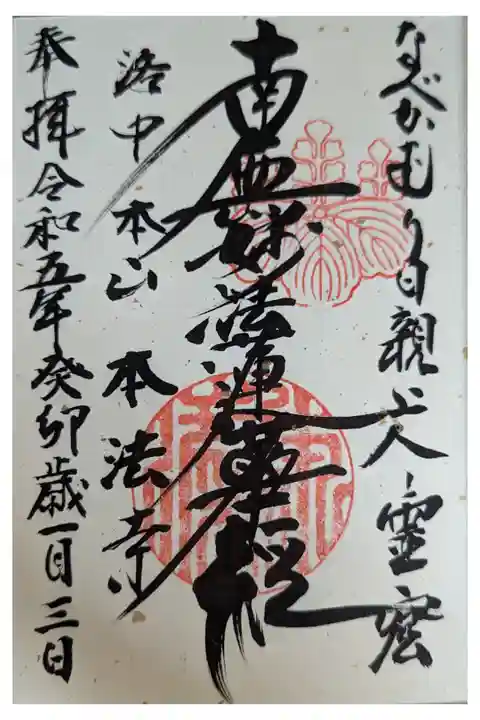 なべかむり日親上人霊窟
南無妙法蓮華経
洛中 本山 本法寺
奉拝 令和五年癸卯歳一月三日